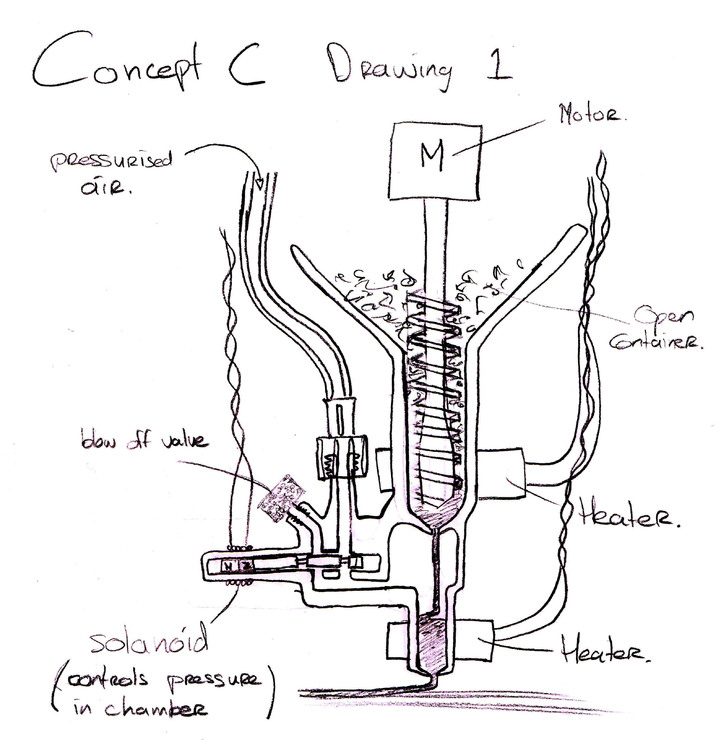 Concept C Drawing 1
Motor.
pressurised
air.
M
Open
Container.
blow off valve
Heater.
solanoid
(controls pressure
in chamber)
Heater.